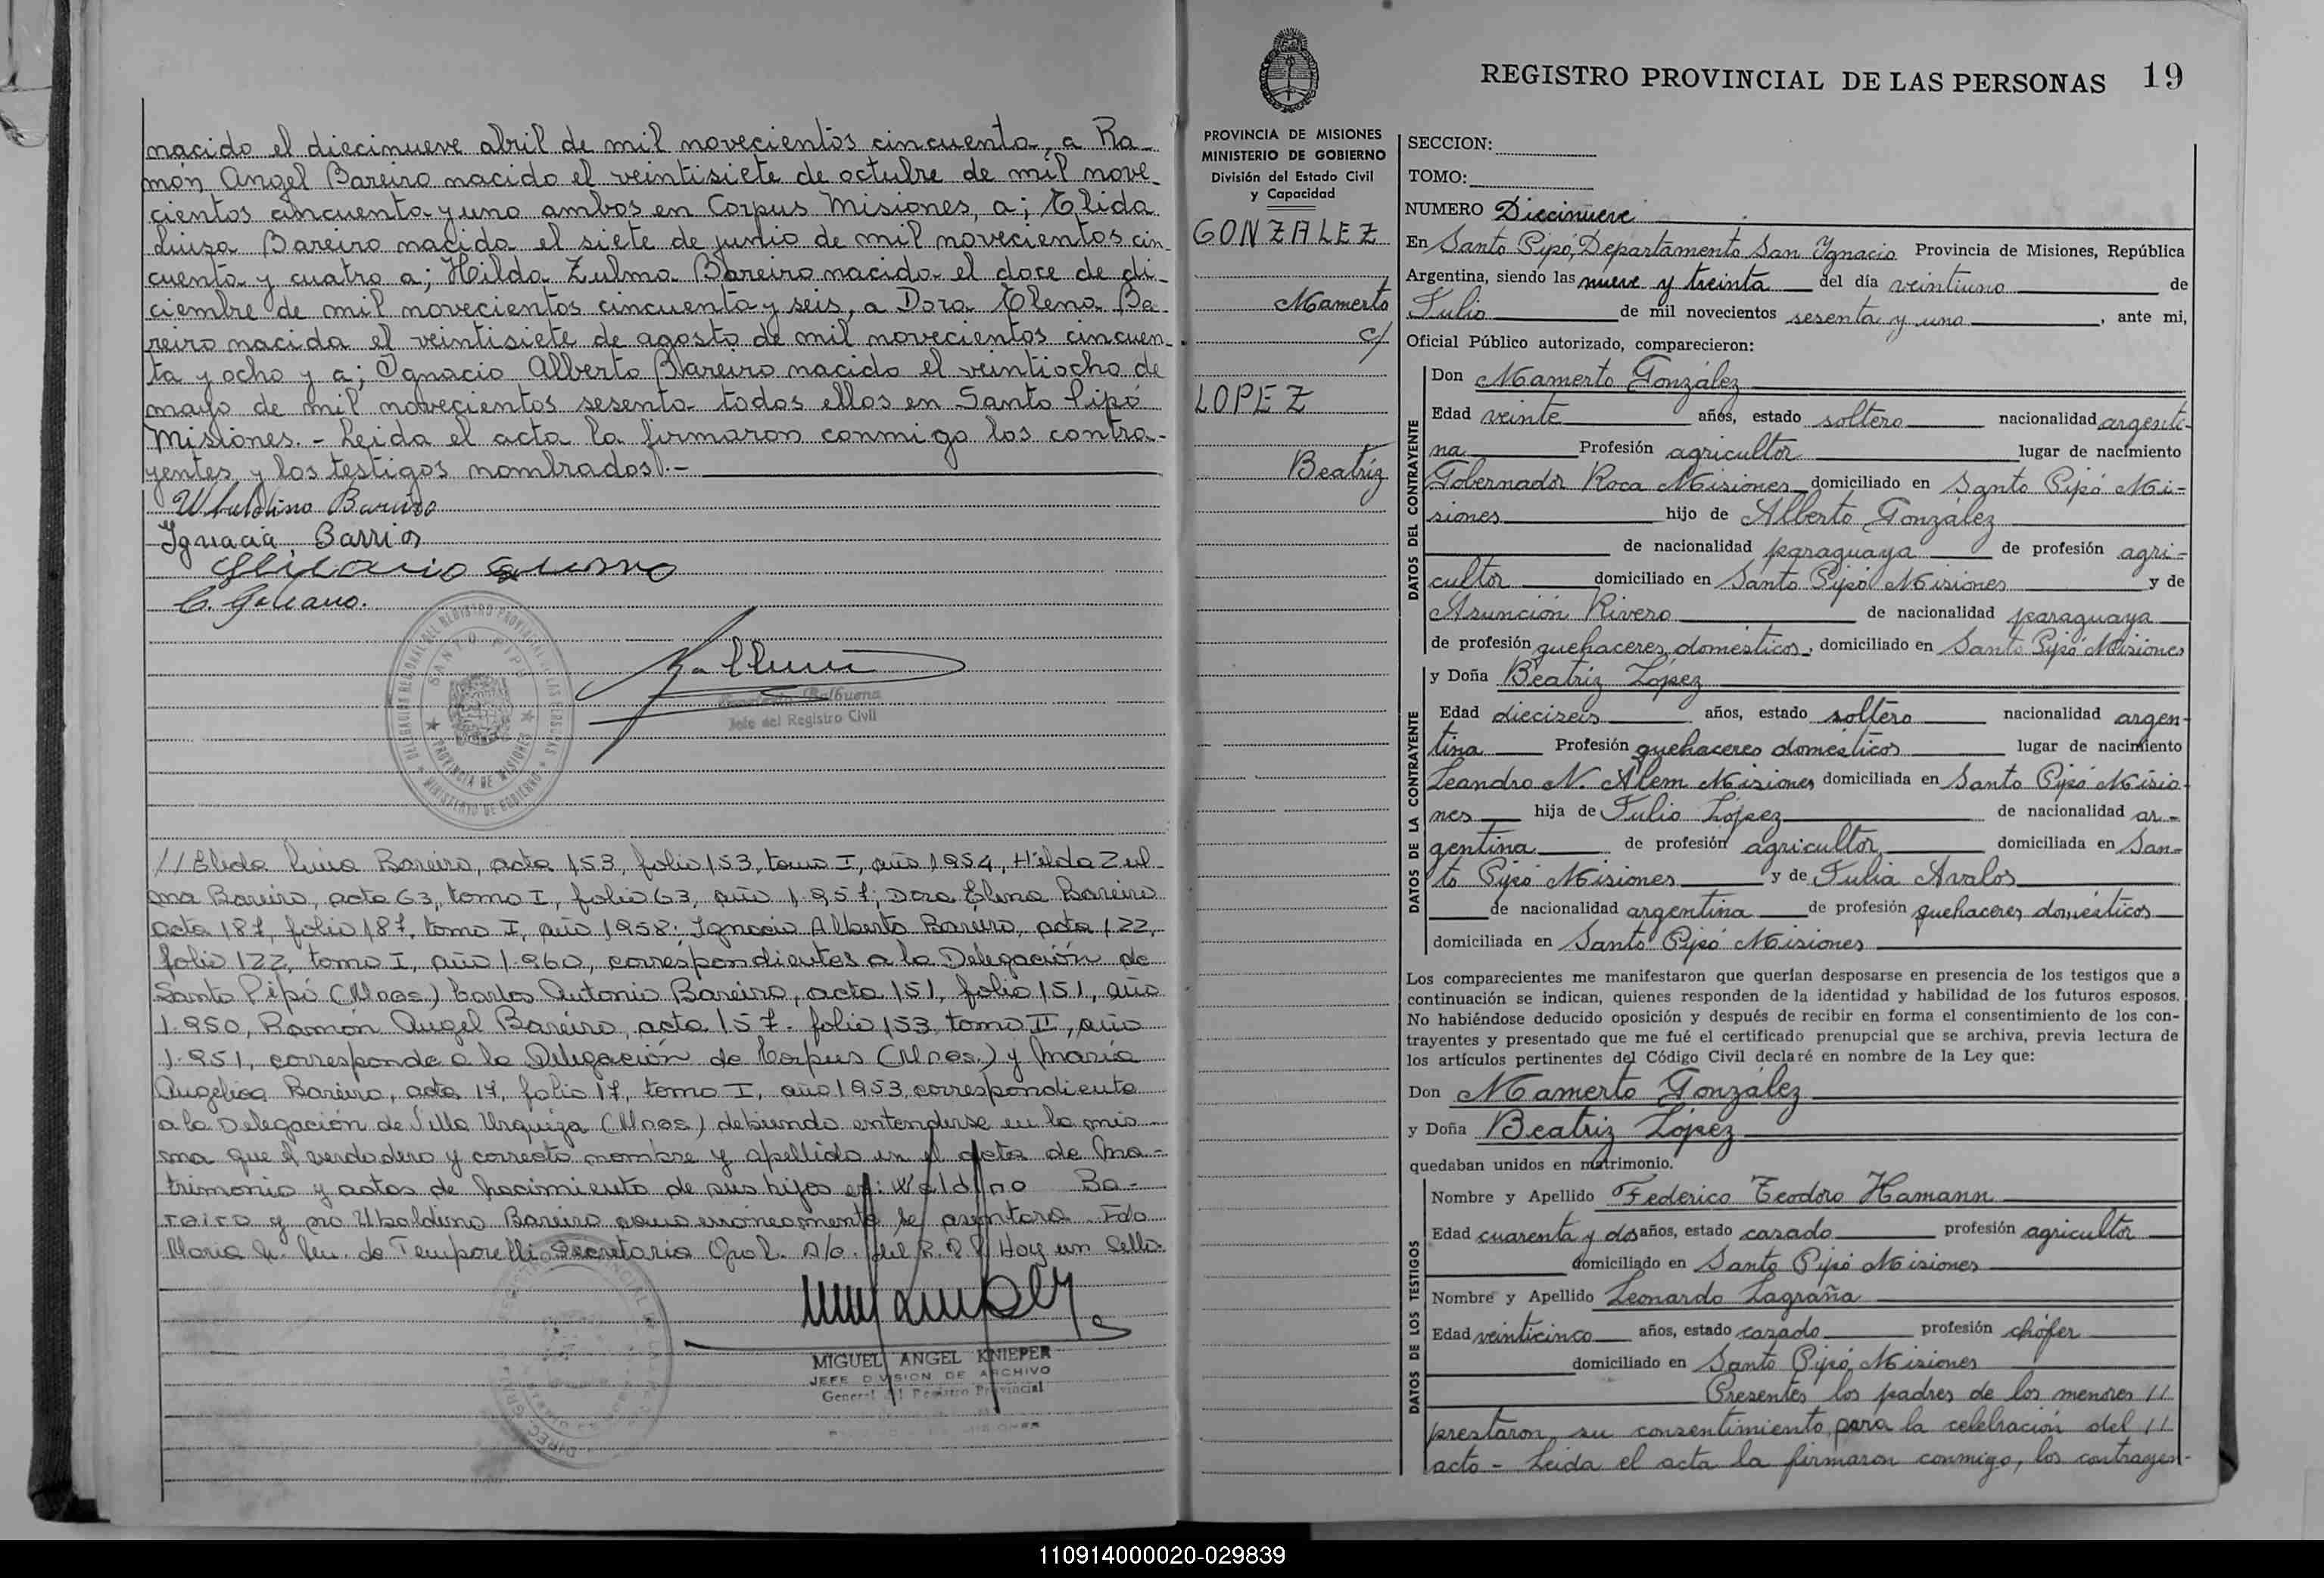 nacido el diecinueve abril de mil novecientos cincuenta, a Ra-
món Angel Bareiro nacido el veintisiete de octubre de mil nove-
cientos cincuenta y uno ambos en Corpus Misiones, a; Elida
Luisa Bareiro nacida el siete de junio de mil novecientos cin
cuenta y cuatro a; Hilda Zulma Bareiro nacida el doce de di-
ciembre de mil novecientos cincuenta y seis, a Dora Elena Ba-
reiro nacida el veintisiete de agosto de mil novecientos cincuen-
ta y ocho y a; Ignacio Alberto Bareiro nacido el veintiocho de
mayo de mil novecientos sesenta todos ellos en Santo Pipó
Misiones. - Leida el acta la firmaron conmigo los contra-
yentes y los testigos nombrados.-
Ubaldino Bareiro
Ignacia Barrios
C. Galeano.
DELEGACION REGIONAL DEL REGISTRO PROVINCIAL DE LAS PERSONAS
SANTO PIPO
PROVINCIA DE MISIONES
MINISTERIO DE GOBIERNO
Balbuena
Jefe del Registro Civil
//Elida Luisa Bareiro, acta 153, folio 153, tomo I, año 1954, Hilda Zul-
ma Bareiro, acta 63, tomo I, folio 63, año 1957; Dora Elena Bareiro
acta 187, folio 187, tomo I, año 1958; Ignacio Alberto Bareiro, acta 122,
folio 122, tomo I, año 1960, correspondientes a la Delegación de
Santo Pipó (Mnes.) Carlos Antonio Bareiro, acta 151, folio 151, año
1950, Ramón Angel Bareiro, acta 157- folio 153, tomo II, año
1951, corresponde a la Delegación de Corpus (Mnes.) y María
Angélica Bareiro, acta 17, folio 17, tomo I, año 1953 correspondiente
a la Delegación de Villa Urquiza (Mnes) debiendo entenderse en la mis
ma que el verdadero y correcto nombre y apellido en el acta de Ma-
trimonio y actas de Nacimiento de sus hijos es: Waldino Ba-
reiro y no Ubaldino Bareiro como erróneamente se asentara. Fdo
María de Temporelli Secretaria Gral. A/c. del R.P.P. Hay un Sello.
MIGUEL ANGEL KNIEPER
JEFE DIVISION DE ARCHIVO
General del Registro Provincial
REGISTRO PROVINCIAL DE LAS PERSONAS 19
PROVINCIA DE MISIONES
MINISTERIO DE GOBIERNO
División del Estado Civil
y Capacidad
GONZALEZ
Mamerto
c/
LOPEZ
Beatriz
SECCION:
TOMO:
NUMERO Diecinueve
En Santo Pipó, Departamento San Ignacio Provincia de Misiones, República
Argentina, siendo las nueve y treinta del día veintiuno de
Julio de mil novecientos sesenta y uno, ante mi,
Oficial Público autorizado, comparecieron:
DATOS DEL CONTRAYENTE
Don Mamerto González
Edad veinte años, estado soltero nacionalidad argenti-
na Profesión agricultor lugar de nacimiento
Gobernador Roca Misiones domiciliado en Santo Pipó Mi-
siones hijo de Alberto González
de nacionalidad paraguaya de profesión agri-
cultor domiciliado en Santo Pipó Misiones y de
Asunción Rivero de nacionalidad paraguaya
de profesión quehaceres domésticos, domiciliado en Santo Pipó Misiones
DATOS DE LA CONTRAYENTE
y Doña Beatriz López
Edad dieciseis años, estado soltero nacionalidad argen-
tina Profesión quehaceres domésticos lugar de nacimiento
Leandro N. Alem Misiones domiciliada en Santo Pipó Misio-
nes hija de Julio López de nacionalidad ar-
gentina de profesión agricultor domiciliada en San-
to Pipó Misiones y de Julia Avalos
de nacionalidad argentina de profesión quehaceres domésticos
domiciliada en Santo Pipó Misiones
Los comparecientes me manifestaron que querían desposarse en presencia de los testigos que a
continuación se indican, quienes responden de la identidad y habilidad de los futuros esposos.
No habiéndose deducido oposición y después de recibir en forma el consentimiento de los con-
trayentes y presentado que me fué el certificado prenupcial que se archiva, previa lectura de
los artículos pertinentes del Código Civil declaré en nombre de la Ley que:
Don Mamerto González
y Doña Beatriz López
quedaban unidos en matrimonio.
DATOS DE LOS TESTIGOS
Nombre y Apellido Federico Teodoro Hamann
Edad cuarenta y dos años, estado casado profesión agricultor
domiciliado en Santo Pipó Misiones
Nombre y Apellido Leonardo Lagraña
Edad veinticinco años, estado casado profesión chófer
domiciliado en Santo Pipó, Misiones
Presentes los padres de los menores //
prestaron su consentimiento para la celebración del //
acto - Leida el acta la firmaron conmigo, los contrayen-
110914000020-029839